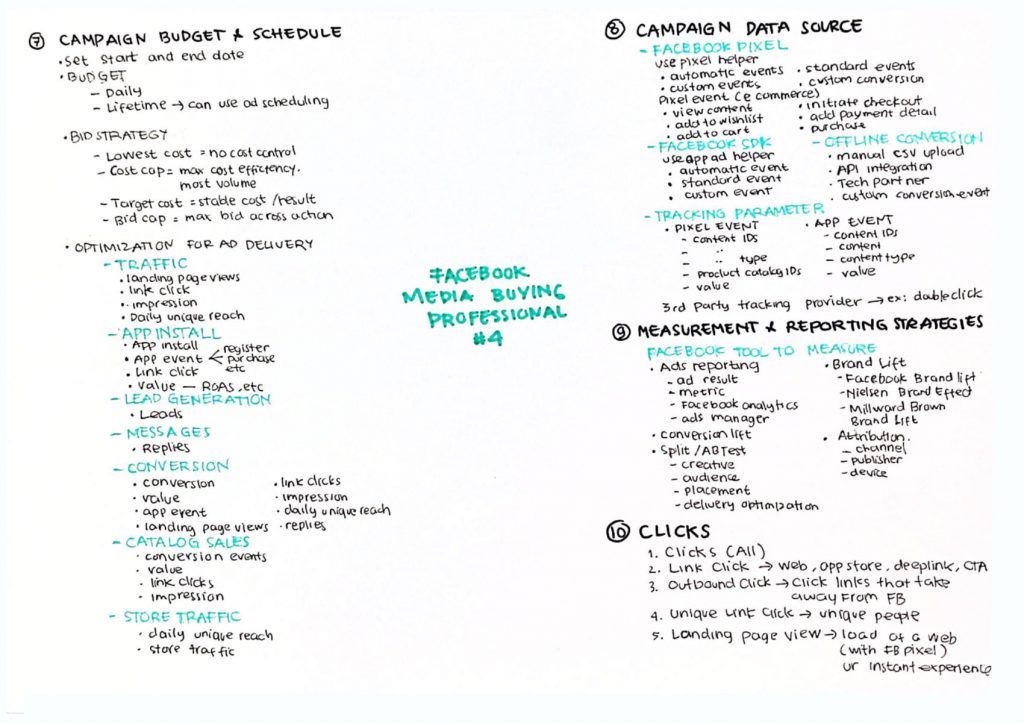 ⑦ CAMPAIGN BUDGET & SCHEDULE
• Set start and end date
• BUDGET
– Daily
– Lifetime → can use ad scheduling
• BID STRATEGY
– Lowest cost = no cost control
– Cost cap = max cost efficiency.
most volume
– Target cost = stable cost / result
– Bid cap = max bid across action
• OPTIMIZATION FOR AD DELIVERY
– TRAFFIC
• landing page views
• link click
• impression
• Daily unique reach
– APP INSTALL
• App install
• App event < register
purchase
etc
• Link click
• value — ROAS, etc
– LEAD GENERATION
• Leads
– MESSAGES
• Replies
– CONVERSION
• conversion
• value
• app event
• landing page views
• link clicks
• impression
• daily unique reach
• replies
– CATALOG SALES
• conversion events
• value
• link clicks
• impression
– STORE TRAFFIC
• daily unique reach
• store traffic
FACEBOOK
MEDIA BUYING
PROFESSIONAL
#4
⑧ CAMPAIGN DATA SOURCE
– FACEBOOK PIXEL
use pixel helper
• automatic events
• custom events
• standard events
• custom conversion
Pixel event (e commerce)
• view content
• add to wishlist
• add to cart
• initiate checkout
• add payment detail
• purchase
– FACEBOOK SDK
use app ad helper
• automatic event
• standard event
• custom event
– OFFLINE CONVERSION
• manual csv upload
• API integration
• Tech partner
• custom conversion-event
– TRACKING PARAMETER
• PIXEL EVENT
– content IDs
– ,,
– ,, type
– product catalog IDs
– value
• APP EVENT
– content IDs
– content
– content type
– value
3rd party tracking provider → ex: doubleclick
⑨ MEASUREMENT & REPORTING STRATEGIES
FACEBOOK TOOL TO MEASURE
• Ads reporting
– ad result
– metric
– Facebook analytics
– ads manager
• conversion lift
• Split / AB Test
– creative
– audience
– placement
– delivery optimization
• Brand Lift
– Facebook Brand lift
– Nielsen Brand Effect
– Millward Brown
Brand Lift
• Attribution.
– channel
– publisher
– device
⑩ CLICKS
1. Clicks (All)
2. Link Click → web, app store, deeplink, CTA
3. Outbound Click → Click links that take
away from FB
4. Unique Link Click → unique people
5. Landing page view → load of a web
(with FB pixel)
ur instant experience